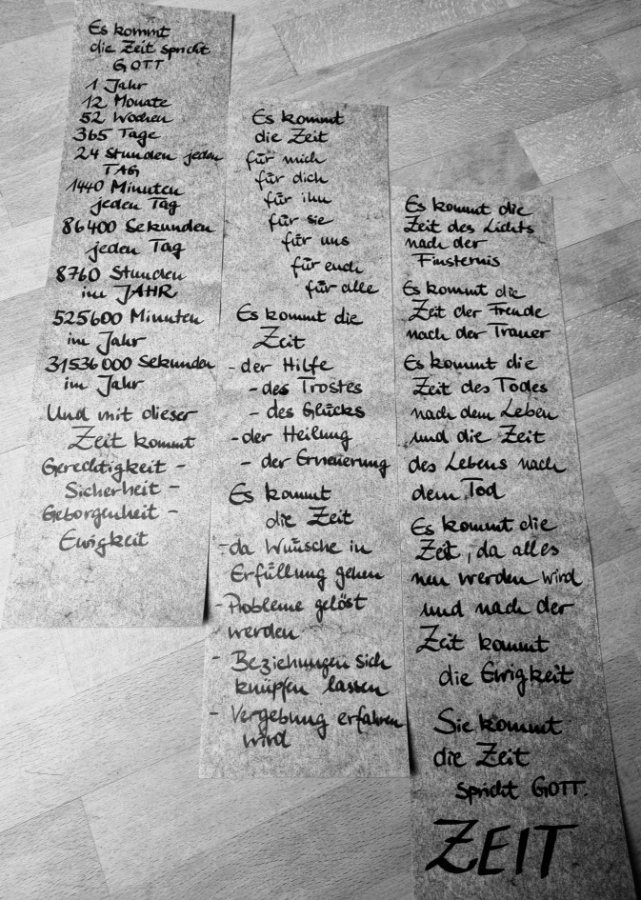 Es kommt
die Zeit spricht
GOTT
1 Jahr
12 Monate
52 Wochen
365 Tage
24 Stunden jeden
TAG
1440 Minuten
jeden Tag
86400 Sekunden
jeden Tag
8760 Stunden
im JAHR
525600 Minuten
im Jahr
31536000 Sekunden
im Jahr
Und mit dieser
Zeit kommt
Gerechtigkeit -
Sicherheit -
Geborgenheit -
Ewigkeit
Es kommt
die Zeit
für mich
für dich
für ihn
für sie
für uns
für euch
für alle
Es kommt die
Zeit
- der Hilfe
- des Trostes
- des Glücks
- der Heilung
- der Erneuerung
Es kommt
die Zeit
- da Wünsche in
Erfüllung gehen
- Probleme gelöst
werden
- Beziehungen sich
knüpfen lassen
- Vergebung erfahren
wird
Es kommt die
Zeit des Lichts
nach der
Finsternis
Es kommt die
Zeit der Freude
nach der Trauer
Es kommt die
Zeit des Todes
nach dem Leben
und die Zeit
des Lebens nach
dem Tod
Es kommt die
Zeit, da alles
neu werden wird
und nach der
Zeit kommt
die Ewigkeit
Sie kommt
die Zeit
spricht GOTT.
ZEIT